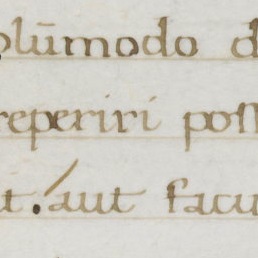 olūmodo d
reperiri poſſ
t. aut facu